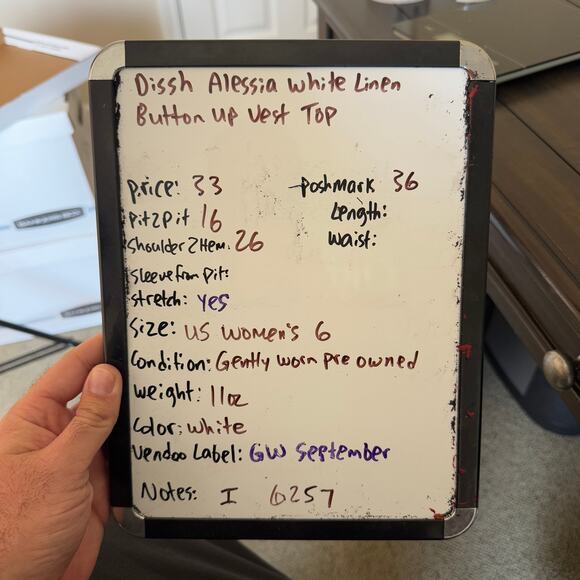 Dissh Alessia White Linen
Button Up Vest Top
price: 33
Poshmark 36
Pit2Pit 16
Length:
Shoulder2Hem: 26
Waist:
Sleeve from Pit:
stretch: yes
Size: US Women's 6
Condition: Gently worn pre owned
weight: 11oz
Color: white
Vendoo Label: GW September
Notes: I 6257